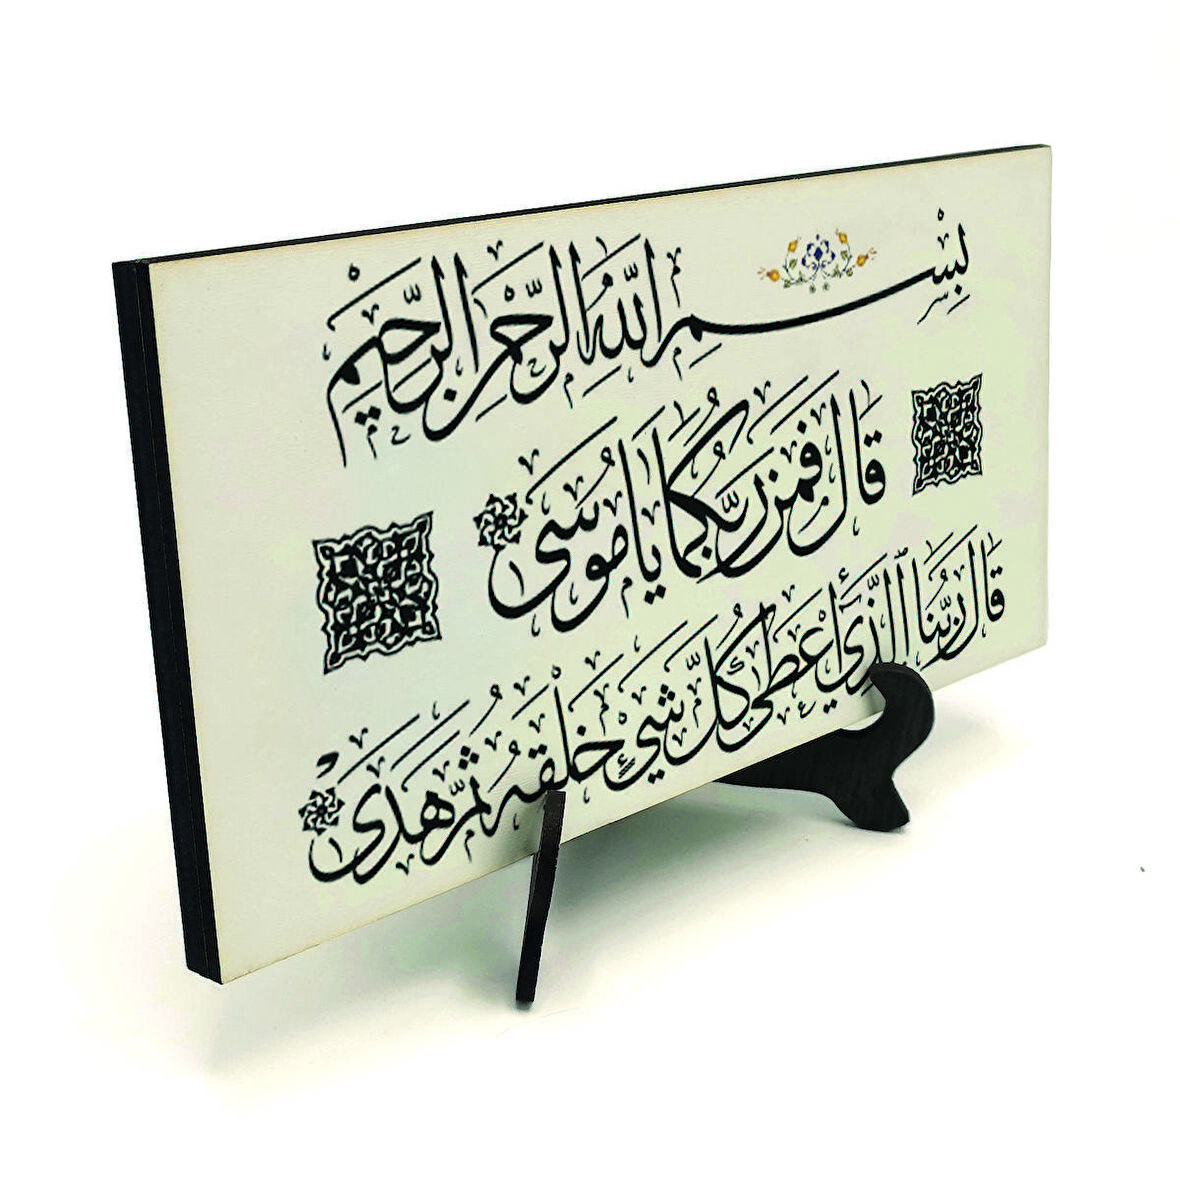 بِسْمِ اللَّهِ الرَّحْمٰنِ الرَّحِيمِ
قَالَ فَمَنْ رَبُّكُمَا يَا مُوسَى
قَالَ رَبُّنَا ٱلَّذِي أَعْطَى كُلَّ شَيْءٍ خَلْقَهُ ثُمَّ هَدَى